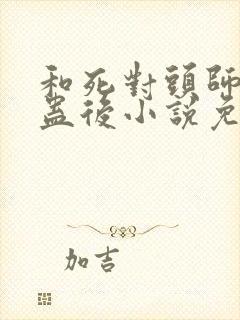 和死對頭師
蠱後小說免
加吉